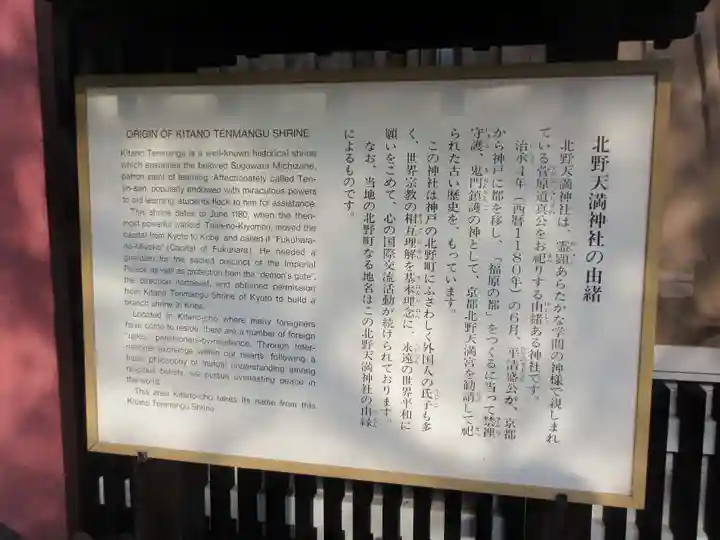 ORIGIN OF KITANO TENMANGU SHRINE
Kitano Tenmangu is a well-known historical shrine
which enshrines the beloved Sugawara Michizane,
patron saint of learning. Affectionately called Ten-
jin-san, popularly endowed with miraculous powers
to aid learning, students flock to him for assistance.
This shrine dates to June 1180, when the then-
most powerful warlord, Taira-no-Kiyomori, moved the
capital from Kyoto to Kobe and called it "Fukuhara-
no-Miyako" (Capital of Fukuhara). He needed a
guardian for the sacred precinct of the Imperial
Palace as well as protection from the "demon's gate",
the direction northeast, and obtained permission
from Kitano Tenmangu Shrine of Kyoto to build a
branch shrine in Kobe.
Located in Kitano-cho where many foreigners
have come to reside, there are a number of foreign
"ujiko," parishioners-by-residence. Through inter-
national exchange within our hearts, following a
basic philosophy of mutual understanding among
religious beliefs, we pursue everlasting peace in
the world.
This area Kitano-cho takes its name from this
Kitano Tenmangu Shrine.
北野天満神社の由緒
北野天満神社は、霊顕あらたかな学問の神様で親しまれ
ている菅原道真公をお祀りする由緒ある神社です。
治承4年（西暦1180年）の6月、平清盛公が、京都
から神戸に都を移し、「福原の都」をつくるに当って禁裡
守護、鬼門鎮護の神として、京都北野天満宮を勧請して祀
られた古い歴史を、もっています。
この神社は神戸の北野町にふさわしく外国人の氏子も多
く、世界宗教の相互理解を基本理念に、永遠の世界平和に
願いをこめて、心の国際交流活動が続けられております。
なお、当地の北野町なる地名はこの北野天満神社の由縁
によるものです。